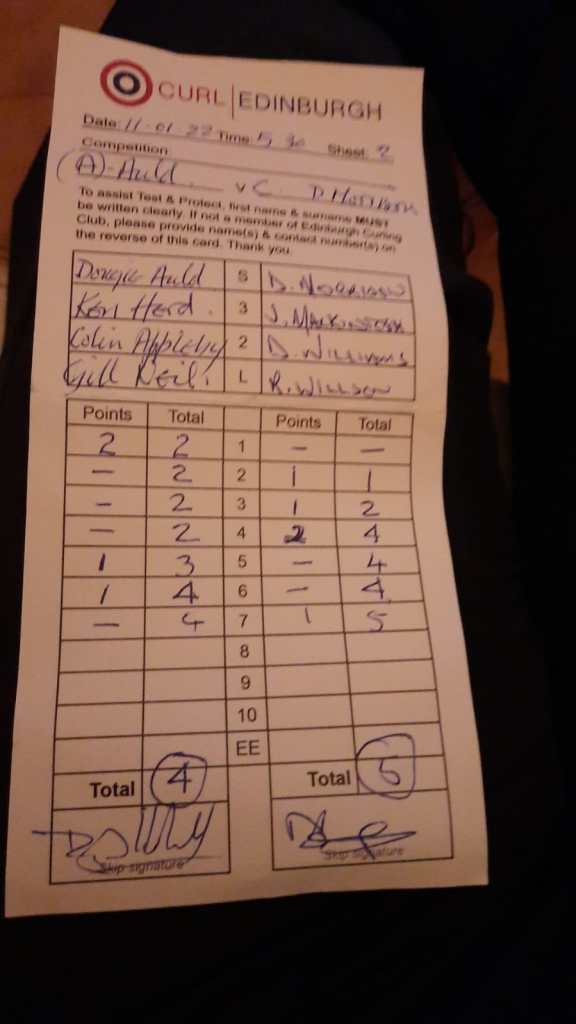 CURL | EDINBURGH
Date: 11-01-22 Time: 5 30 Sheet: 2
Competition
(A)-Auld v C. D Morrison
To assist Test & Protect, first name & surname MUST
be written clearly. If not a member of Edinburgh Curling
Club, please provide name(s) & contact number(s) on
the reverse of this card. Thank you.
Dougie Auld S D. MORRISON
Ken Herd. 3 J. MACKINTOSH
Colin Appleby 2 D. WILLIAMS
Gill Neil. L R. WILLSON
Points Total Points Total
2 2 1 - -
- 2 2 1 1
- 2 3 1 2
- 2 4 2 4
1 3 5 - 4
1 4 6 - 4
- 4 7 1 5
8
9
10
EE
Total 4 Total 5
Skip signature Skip signature